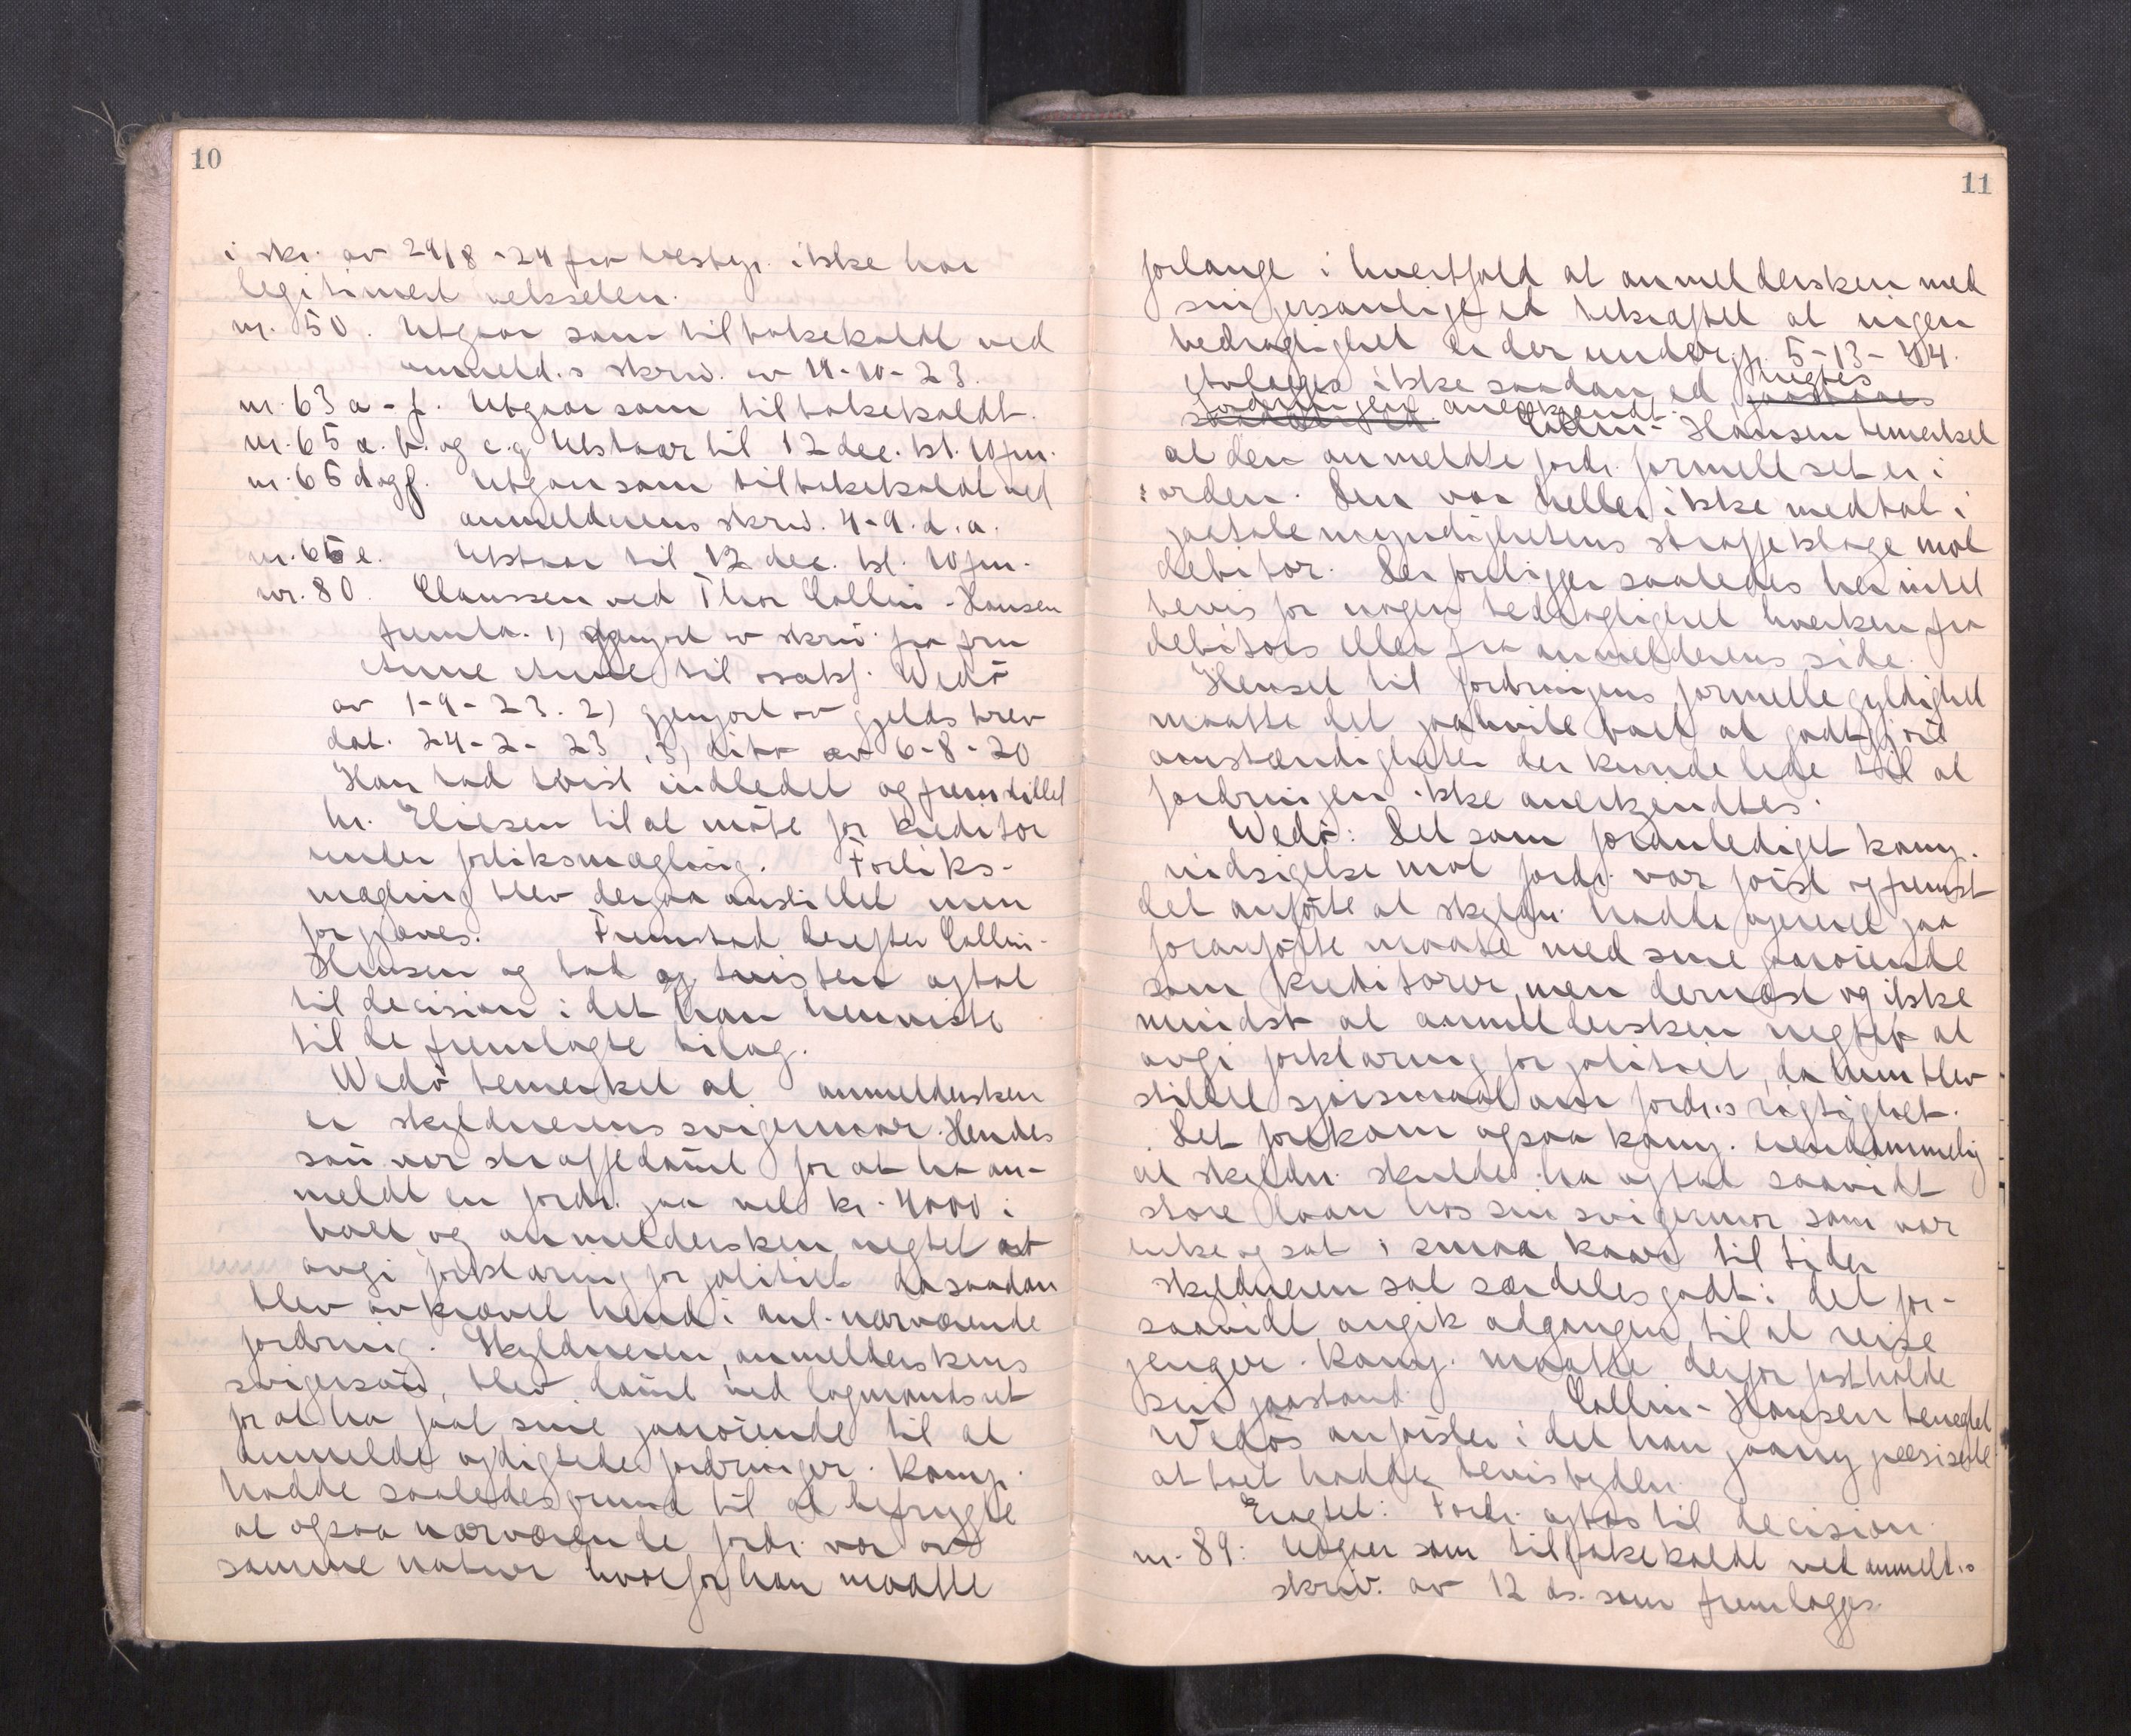 10
i skr. av 29/8-24 fra bestyr. ikke har
legitimert vekselen.
nr. 50. Utgaar som tilbakekaldt ved
anmeld.s skriv. av 11-10-23.
nr. 63 a-f. Utgaar som tilbakekaldt.
nr. 65 a. b. og c. g Utstaar til 12 dec. kl. 10 fm.
nr. 65 d og f. Utgaar som tilbakekaldt ved
anmelderens skriv. 4-9. d.a.
nr. 65 e. Utstaar til 12 dec. kl. 10 fm.
nr. 80. Claussen ved Thor Collin-Hansen
fremla. 1) gjenpart av skriv. fra fru
Anne til osakf. Wedö
av 1-9-23. 2) gjenpart av gjeldsbrev
dat. 24-2-23, 3) dito av 6-8-20
Han bad tvist indledet og fremstillet
hr. Eliesen til at möte for kreditor
under forliksmægling. Forliks-
mægling blev derpaa anstillet men
forgjæves. Fremstod derefter Collin-
Hansen og bad tvisten optat
til decision i det han henviste
til de fremlagte bilag.
Wedö bemerket at anmeldersken
er skyldnerens svigermor. Hendes
sön var straffedömt for at ha an-
meldt en fordr. paa vel kr. 4000 i
boet og anmeldersken negtet at
avgi forklaring for politiet da saadan
blev avkrævet hende i anl. nærværende
fordring. Skyldneren, anmelderskens
svigersön, blev dömt ved lagmandsret
for at ha faat sine paarörende til at
anmelde opdigtede fordringer. Komp.
hadde saaledes grund til at befrygte
at ogsaa nærværende fordr. var av
samme natur hvorfor han maatte
11
forlange i hvertfald at anmeldersken med
sin personlige ed bekræftet at ingen
bedragelighet er der under gj. 5-13-44.
Avlægges ikke saadan ed negtes
fordringen anerkjendt. Collin-Hansen bemerket
at den anmeldte fordr. formelt set er i
orden. Den var heller ikke medtat i
paatalemyndighetens straffeklage mot
debitor. Der foreligger saaledes her intet
bevis for nogen bedragelighet hverken fra
debitors eller fra anmelderens side.
Henset til fordringens formelle gyldighet
maatte det paahvile boet at godtgjöre
omstændigheter der kunde lede til at
fordringen ikke anerkjendtes.
Wedö: Det som foranlediget komp.
indsigelse mot fordr. var först og fremst
det anförte at skyldn. hadde operert paa
foranförte maate med sine paarörende
som kreditorer, men dernæst og ikke
mindst at anmeldersken negtet at
avgi forklaring for politiet, da hun blev
stillet spörsmaal om fordr.s rigtighet.
Det forekom ogsaa komp. eiendommelig
at skyldn. skulde ha optat saavidt
store laan hos sin svigermor som var
enke og sat i smaa kaar til tider
skyldneren sat særdeles godt i det for-
saavidt angik adgangen til at reise
penger. Komp. maatte derfor fastholde
sin paastand. Collin-Hansen benegtet
Wedös anförsler i det han paany præsiserte
at boet hadde bevisbyrden.
Eragtet: Fordr. optas til decision.
nr. 89: Utgaar som tilbakekaldt ved anmeld.s
skriv. av 12 ds. som fremlægges.